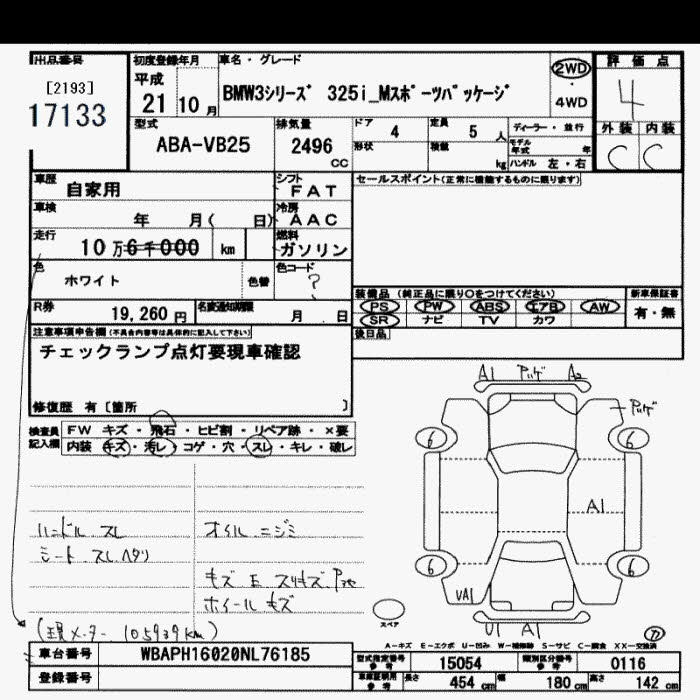 出品番号
[2193]
17133
初度登録年月
平成
21 10 月
車名・グレード
BMW3シリーズ 325i_Mスポーツパッケージ
2WD
・
4WD
評価点
4
外装 内装
C C
型式
ABA-VB25
排気量
2496 cc
ドア 4
定員 5 人
形状
積載 kg
ディーラー・並行
モデル年式 年
ハンドル 左・右
車歴
自家用
シフト
FAT
車検
年 月( 日)
冷房
AAC
走行
10 万 6千000 km
燃料
ガソリン
色
ホワイト
色替
色コード
?
R券
19,260 円
名変通知期限
月 日
セールスポイント(正常に機能するものに限ります)
装備品 (純正品に限り○をつけてください)
PS PW ABS エアB AW
SR ナビ TV カワ
新車保証書
有・無
後日品
注意事項申告欄(不具合内容等は具体的に記入して下さい)
チェックランプ点灯要現車確認
修復歴 有 [箇所 ]
検査員記入欄
FW キズ・飛石・ヒビ割・リペア跡・×要
内装 キズ・汚レ・コゲ・穴・スレ・キレ・破レ
ハンドル スレ
シート スレ ヘタリ
オイル ニジミ
ホイール キズ
(現メーター 105939km)
A1 A2
6 6
A1
6 6
VA1
U1 A1
スペア
A－キズ E－エクボ U－凹み W－補修跡 S－サビ C－腐食 XX－交換済
車台番号
WBAPH16020NL76185
登録番号
型式指定番号 参考
15054
類別区分番号 参考
0116
車庫証明用 参考
長さ 454 cm
幅 180 cm
高さ 142 cm